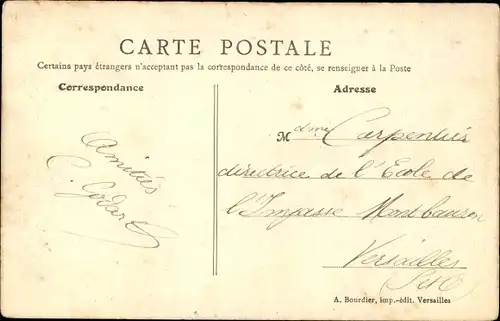 CARTE POSTALE
Certains pays étrangers n'acceptant pas la correspondance de ce côté, se renseigner à la Poste
Correspondance
Adresse
Amitiés
C. Godard
Mdme Carpentier
directrice de l'Ecole de
l'Impasse Montbauron
Versailles
(S&O)
A. Bourdier, imp.-édit. Versailles